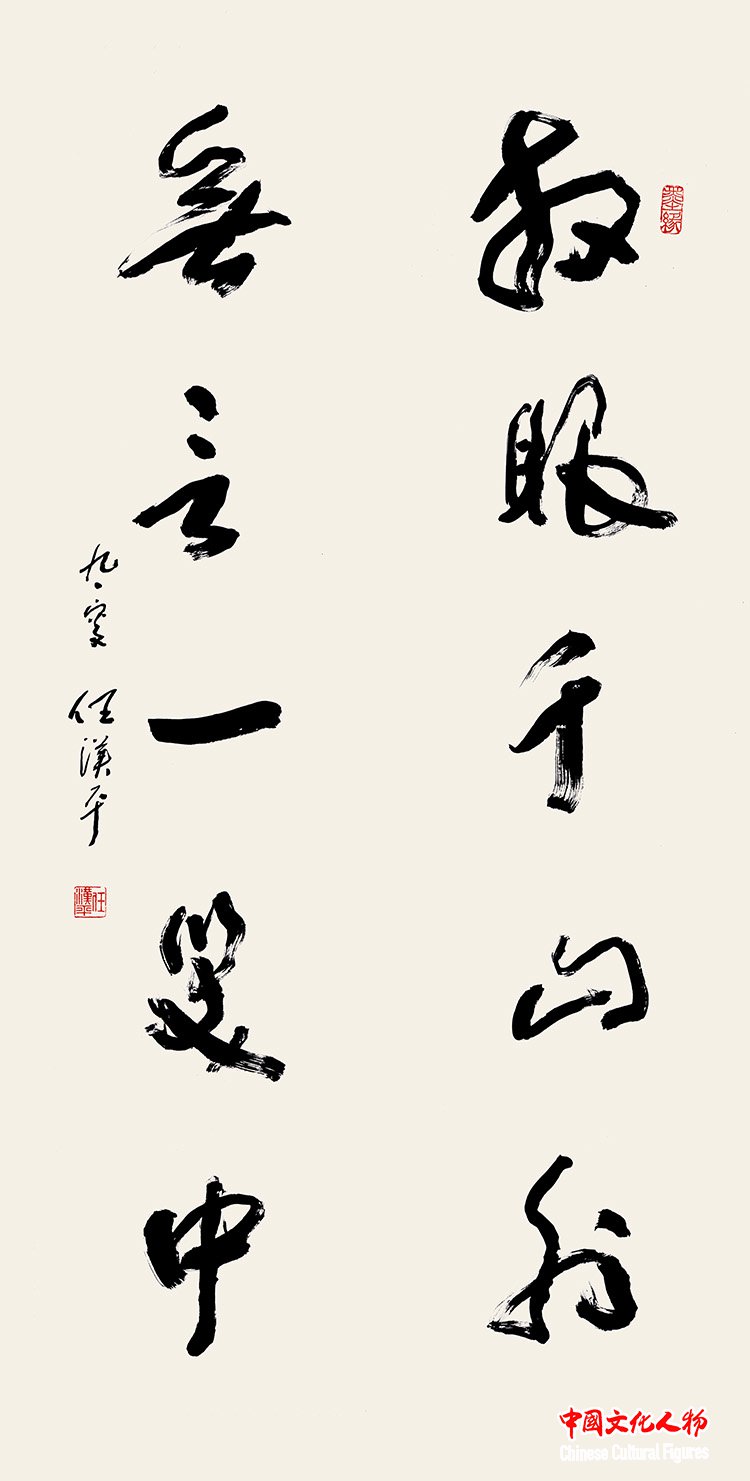 墨缘
放眼千山外
無言一笑中
任漢平
任漢平
中國文化人物
Chinese Cultural Figures